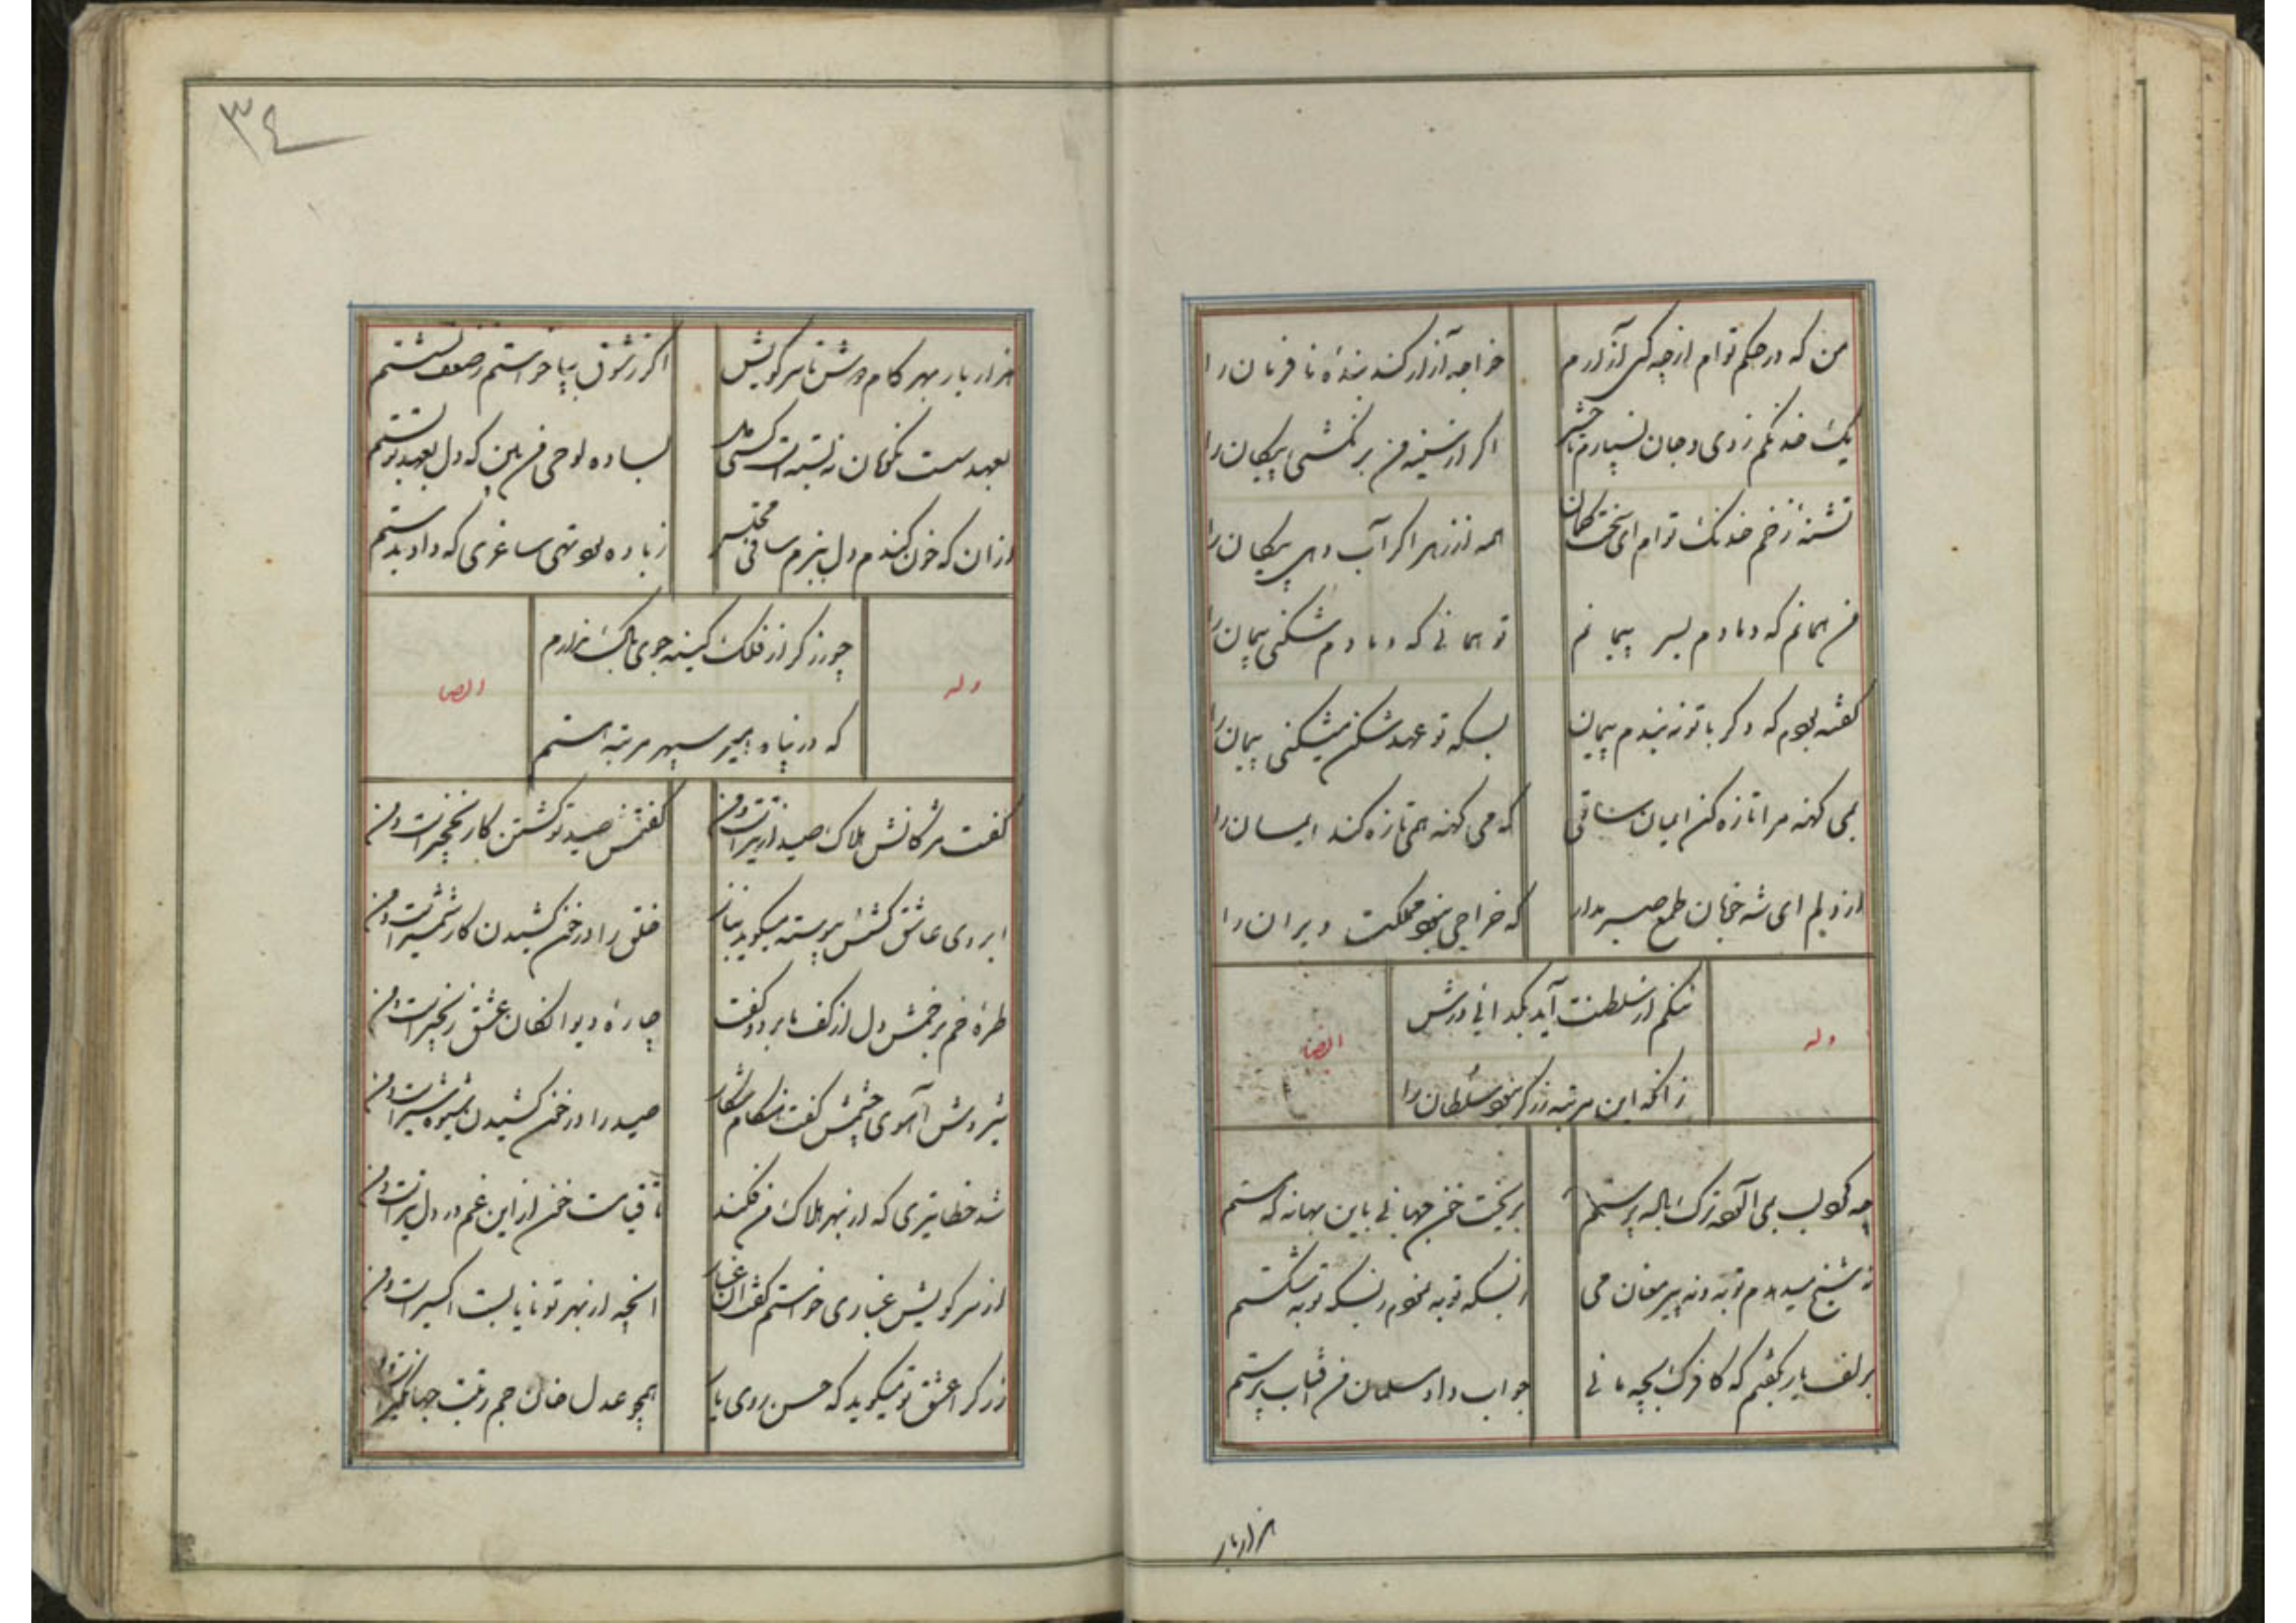 من که در حکم توام از چه کس آزارم خواجه آزار کند بندهٔ نافرمان را
یک خدنگم زدی و جان نسپارم تا حشر اگر از سینهٔ من برنکشی پیکان را
تشنهٔ زخم خدنگ توام ای سخت کمان همه از زهر اگر آب دهی پیکان را
من همانم که دمادم بسر پیمانم تو همانی که دمادم شکنی پیمان را
گفته بودم که دگر با تو نه بندم پیمان بسکه تو عهد شکن میشکنی پیمان را
بمی کهنه مرا تازه کن ایمان ساقی که می کهنه همی تازه کند ایمان را
از دلم ای شه خوبان طمع صبر مدار که خراجی نبود مملکت ویران را
وله
ننگم از سلطنت آید بگدائی درش
زانکه این مرتبه زرگر نبود سلطان را
ایضا
چه کرد لب بمی آلوده ترک باله پرستم بریخت خون جهانی باین بهانه که مستم
نه شیخ میدهدم توبه و نه پیر مغان می ز بسکه توبه نمودم ز بسکه توبه شکستم
بزلف یار بگفتم که کافرک بچه مانی جواب داد مسلمان من آفتاب پرستم
هزار بار
۳۴
هزار بار بهر گام در رهش تا سر کویش اگر ز شوق بپا خواستم ز ضعف نشستم
بعهد سست نکویان نه بسته است کسی دل بساده لوحی من بین که دل بعهد تو بستم
از آن که خون کندم دل ببزم ساقی مجلس ز باده بود تهی ساغری که داد بدستم
وله
چو زرگر از فلک کینه جوی باک ندارم
که در پناه امیر سپهر مرتبه هستم
ایضا
گفت مژگانش هلاک صید از تیر است و من گفتمش صید تو کشتن کار نخجیر است و من
ابروی عاشق کشش پیوسته میگوید بناز خلق را در خون کشیدن کار شمشیر است و من
طرهٔ خم بر خمش دل از کف ما برد و گفت چارهٔ دیوانگان عشق زنجیر است و من
شیر وش آهوی چشمش گفت هنگام شکار صید را در خون کشیدن شیوه شیر است و من
شد خطا تیری که از بهر هلاک من فکند تا قیامت خون از این غم در دل تیر است و من
از سر کویش غباری خواستم گفت آن غبار آنچه از بهر تو نایابست اکسیر است و من
زرگر از عشق تو میگوید که حسن روی یار همچو عدل خان جم رتبت جهانگیر است و من